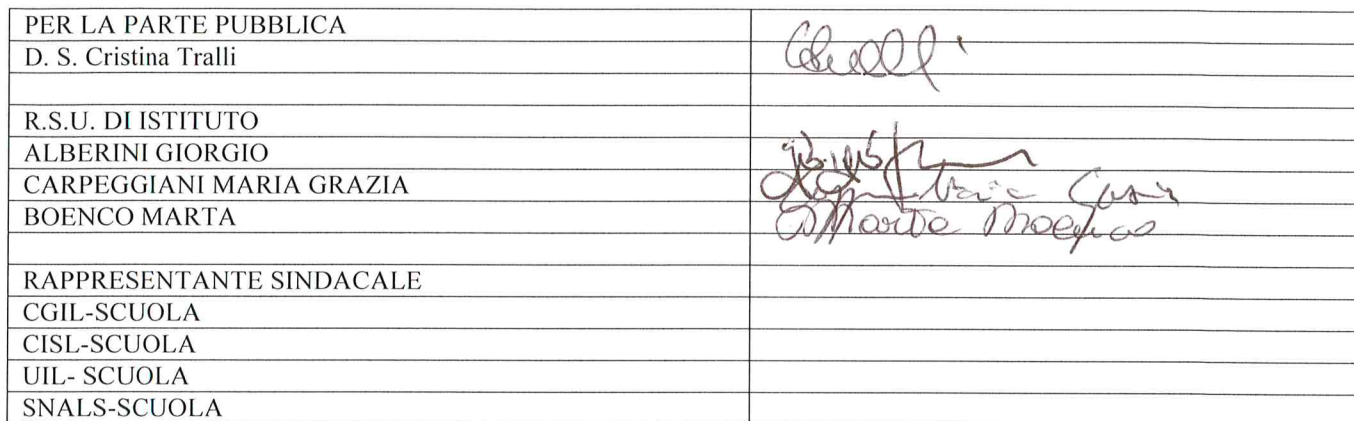 PER LA PARTE PUBBLICA
D. S. Cristina Tralli
R.S.U. DI ISTITUTO
ALBERINI GIORGIO
CARPEGGIANI MARIA GRAZIA
BOENCO MARTA
Marta
RAPPRESENTANTE SINDACALE
CGIL-SCUOLA
CISL-SCUOLA
UIL- SCUOLA
SNALS-SCUOLA